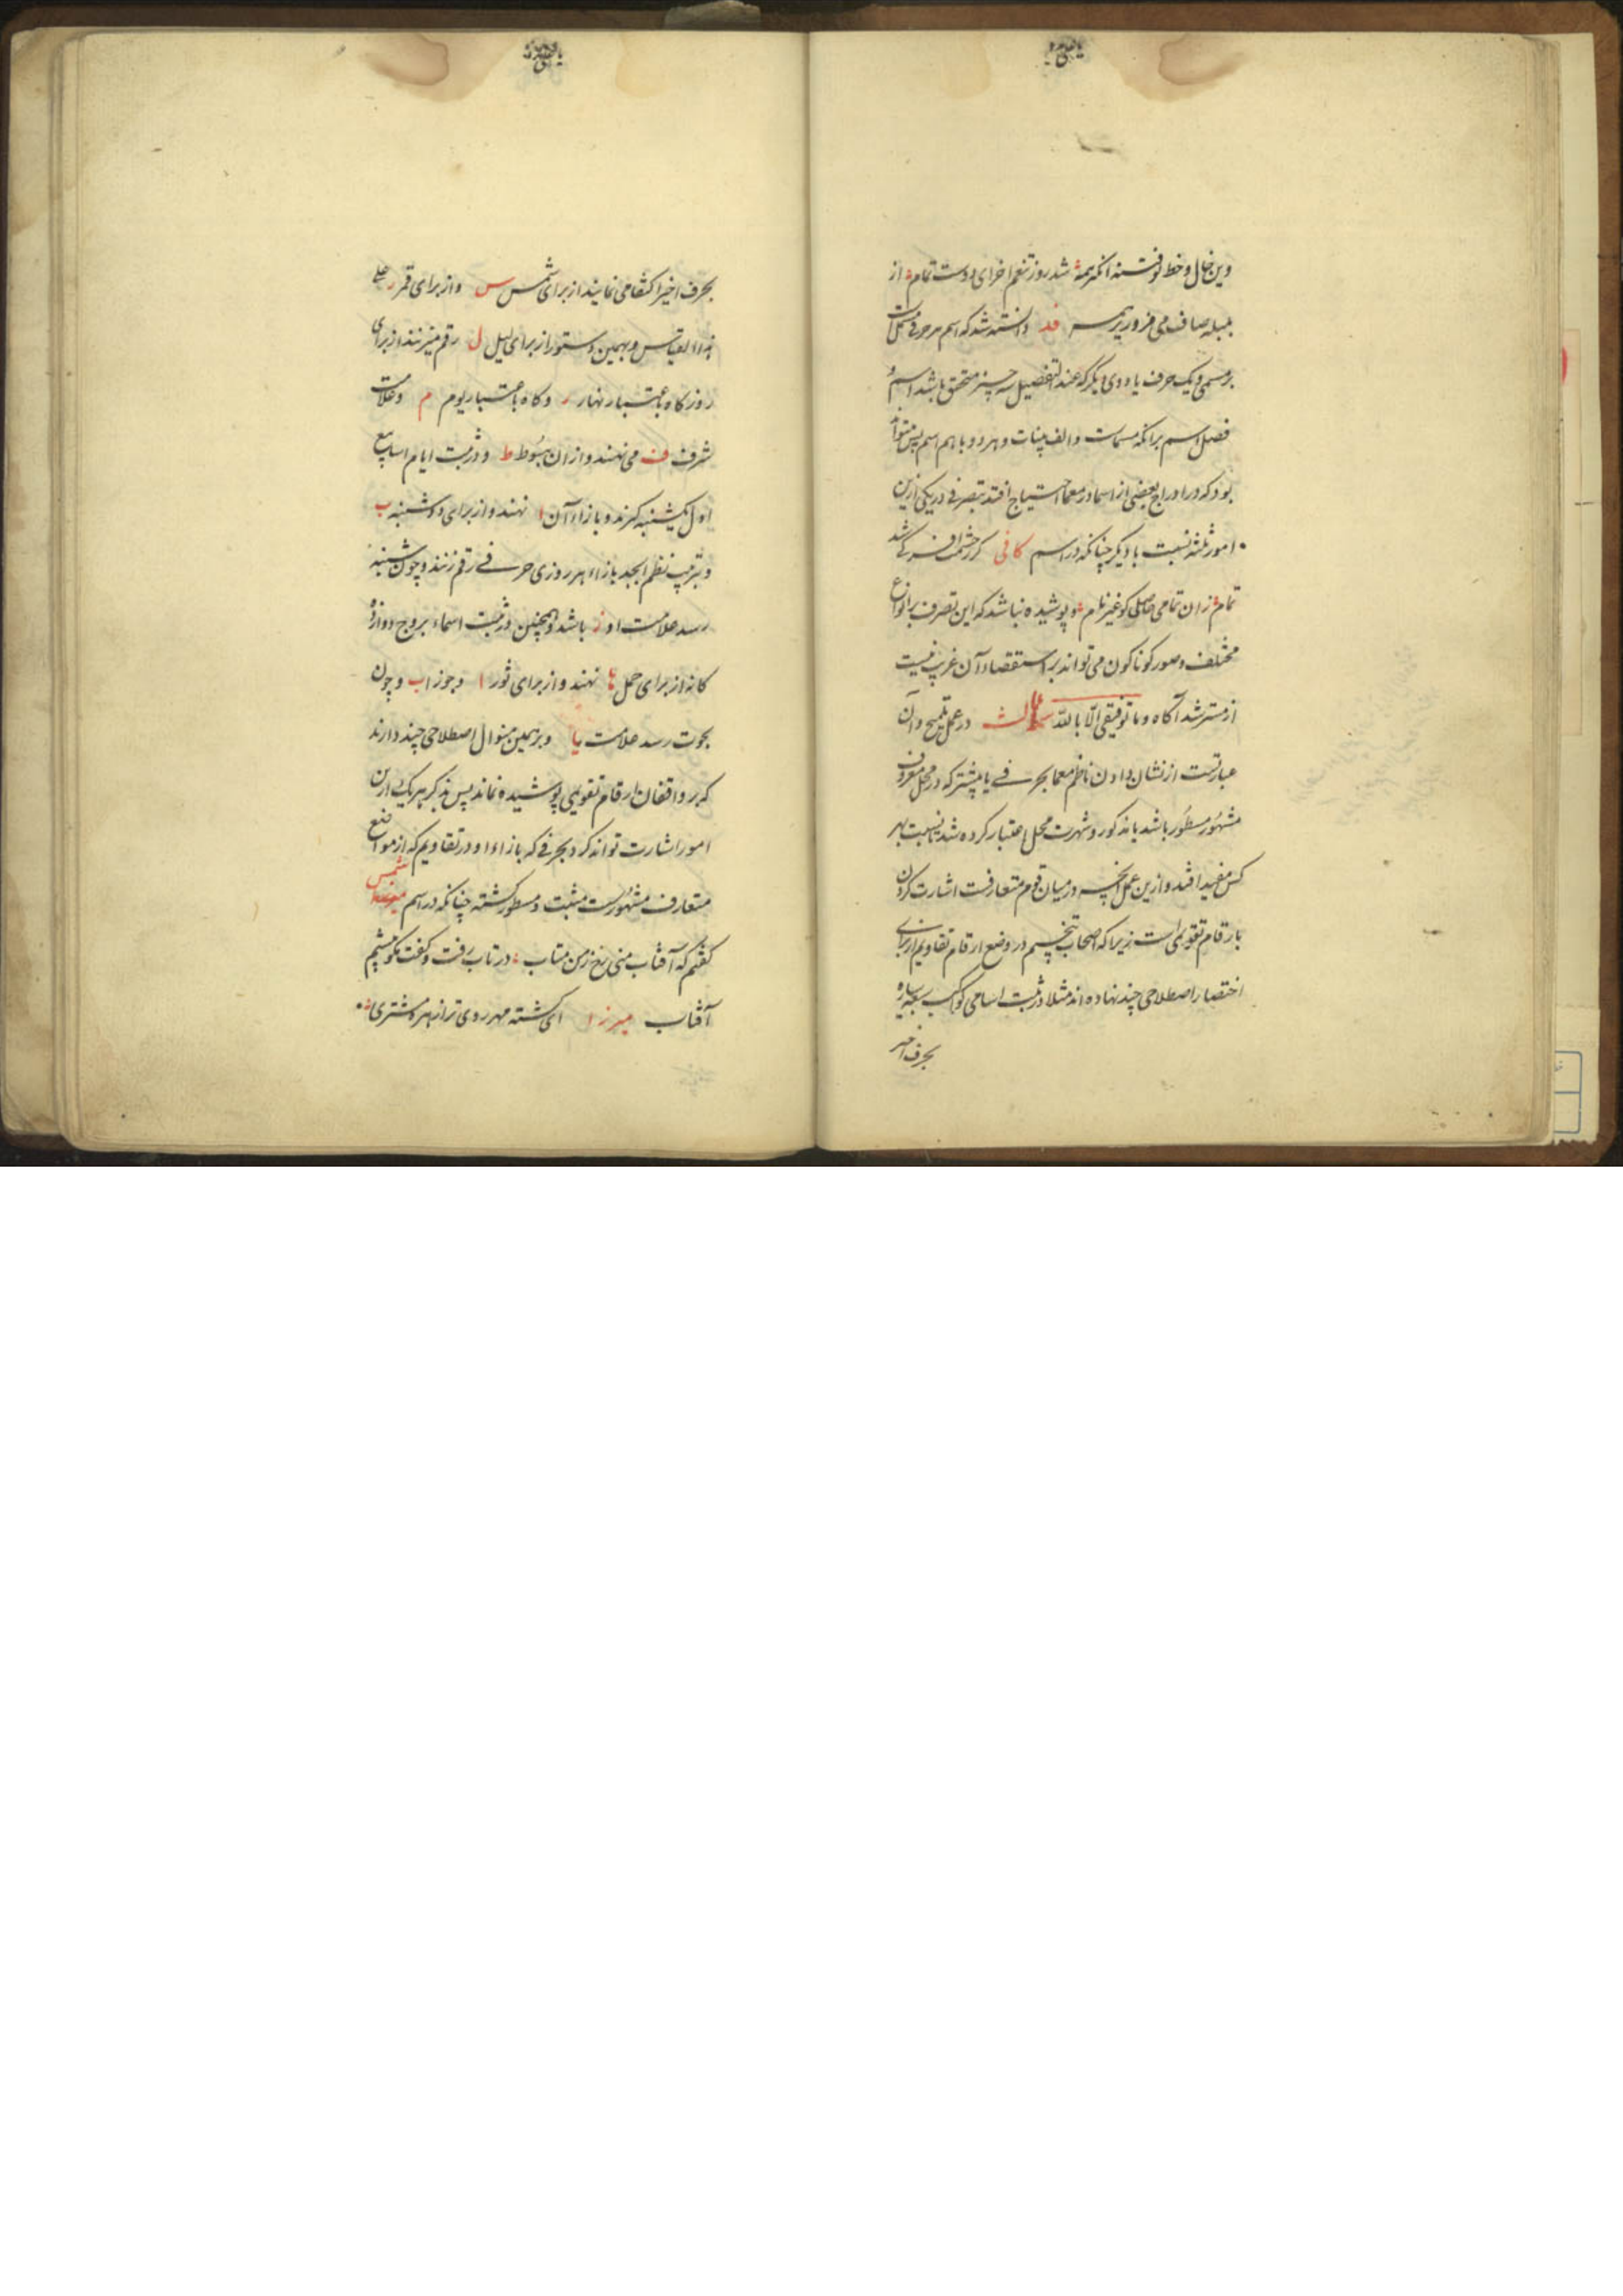 وین خال و خط تو فتنه انگیز همه شد روز تنعم اخرای دوست تمام از
صاف می فروریز همه قد دانسته شد که اسم هر حرفی مشتملست
بر مسمی و یک حرف یا دوی دیگر که عند التفصیل سه چیز متحقق باشد اسم و
بود که در ادراج بعضی از اسما در معما احتیاج افتد بتصرفی در یکی ازین
امور ثلثه نسبت با دیگر چنانکه در اسم کافی
تمام زان تمامی حاصلی کو غیر نام و پوشیده نباشد که این تصرف بر انواع
مختلف و صور کوناکون می تواند بر استقصاء آن غریب نیست
از مسترشد آکاه و ما توفیقی الا بالله ثالث در عمل تلمیح و آن
عبارتست از نشان دادن ناظم معما بحرفی یا بیشتر که در محل معروف
مشهور مسطور باشد یا مذکور و شهرت محل اعتبار کرده شد تا نسبت بهر
کس مفید افتد و ازین عمل آنچه در میان قوم متعارفست اشارت کردن
بارقام تقویمی است زیرا که اصحاب تنجیم در وضع ارقام تقاویم از برای
اختصار اصطلاحی چند نهاده اند مثلا در ثبت اسامی کواکب سبعه سیاره
بحرف اخیر
بحرف اخیر اکتفا می نمایند از برای شمس س و از برای قمر ر علی
هذا القیاس و بهمین دستور از برای لیل ل رقم میزنند از برای
روز کاه باعتبار نهار ر و کاه باعتبار یوم م و علامت
شرف ف می نهند و از ان هبوط ط و در ثبت ایام اسابیع
اول یکشنبه کیرند و بازاء آن ا نهند و از برای دوشنبه ب
و بترتیب نظم ابجد بازاء هر روزی حرفی رقم زنند و چون بشنبه
رسد علامت او ز باشد و همچنین در ثبت اسماء بروج دوازده
کانه از برای حمل ها نهند و از برای ثور ا و جوزا ب و چون
بحوت رسد علامت یا و برهمین منوال اصطلاحی چند دارند
که بر واقفان ارقام تقویمی پوشیده نماند پس بذکر هریک ازین
امور اشارت تواند کرد بحرفی که بازاء او در تقاویم که از مواضع
متعارف مشهورست مثبت و مسطور کشته چنانکه در اسم شمس
کفتم که آفتاب منی رخ ز من متاب در تاب رفت و کفت نکو نیستیم
آفتاب میرزا ای کشته مهر روی تو از هر مشتری